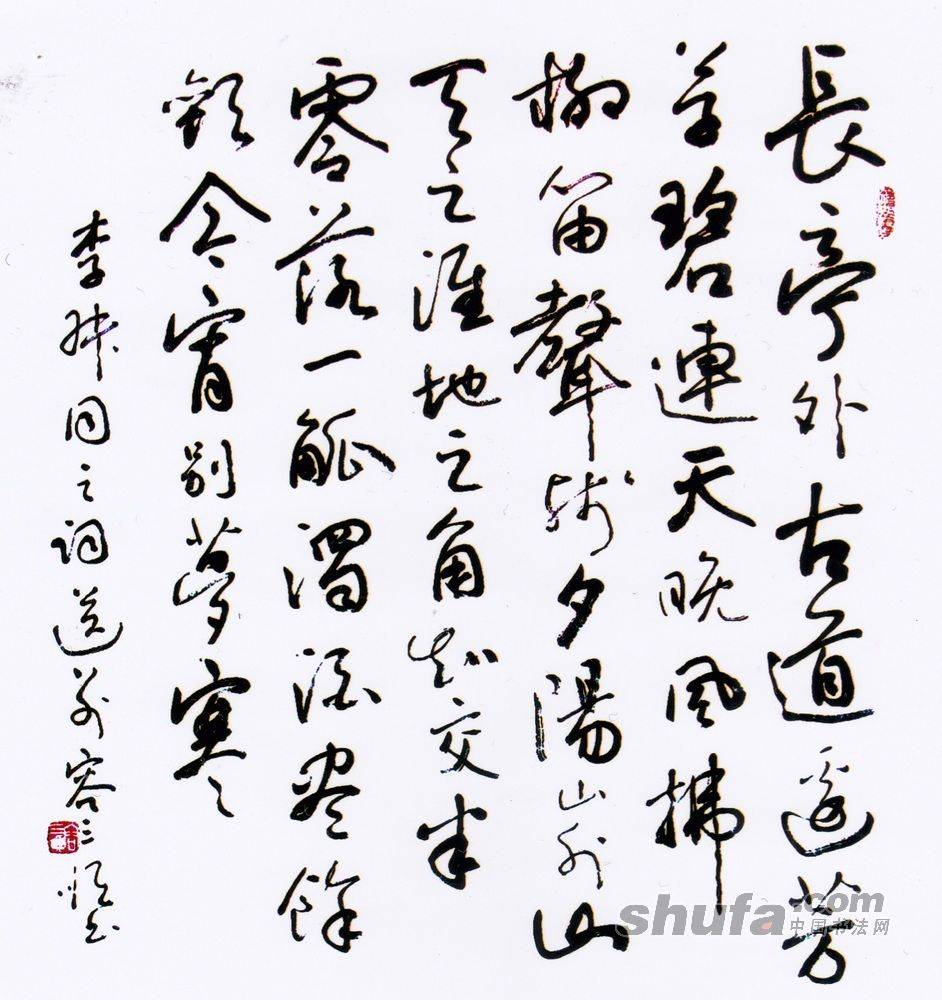 長亭外古道邊芳
草碧連天晚風拂
柳笛聲殘夕陽山外山
天之涯地之角知交半
零落一觚濁酒盡餘
歡今宵別夢寒
李叔同之詞送別容三书
shufa.com
中国书法网